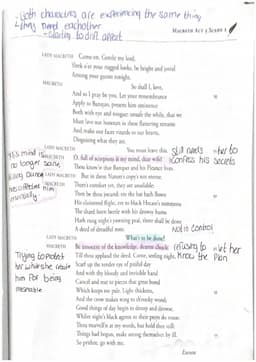 -both characters are experiencing the same thing
↳they need eachother
-starting to drift apart
MACBETH ACT 3 SCENE 2
LADY MACBETH Come on. Gentle my lord,
Sleek o'er your rugged looks, be bright and jovial
Among your guests tonight.
MACBETH So shall I, love,
And so I pray be you. Let your remembrance
Apply to Banquo, present him eminence
Both with eye and tongue: unsafe the while, that we
Must lave our honours in these flattering streams
And make our faces vizards to our hearts,
Disguising what they are.
LADY MACBETH You must leave this.
still needs her to
confess his secrets
MACBETH O, full of scorpions is my mind, dear wife!
Thou know'st that Banquo and his Fleance lives.
LADY MACBETH But in them Nature's copy's not eterne.
his mind is
no longer sane
killing Duncan
has affected him
mentally
MACBETH There's comfort yet, they are assailable;
Then be thou jocund: ere the bat hath flown
His cloistered flight, ere to black Hecate's summons
The shard-born beetle with his drowsy hums
Hath rung night's yawning peal, there shall be done
A deed of dreadful note.
Not in control
LADY MACBETH What's to be done?
MACBETH Be innocent of the knowledge, dearest chuck,
refusing to let her
know the plan
Till thou applaud the deed. Come, seeling night,
Scarf up the tender eye of pitiful day
And with thy bloody and invisible hand
Cancel and tear to pieces that great bond
Which keeps me pale. Light thickens,
Trying to protect
her
him for being
And the crow makes wing to th'rooky wood;
Good things of day begin to droop and drowse,
Whiles night's black agents to their preys do rouse.
Thou marvell'st at my words, but hold thee still;
Things bad begun, make strong themselves by ill.
So prithee, go with me.
Exeunt